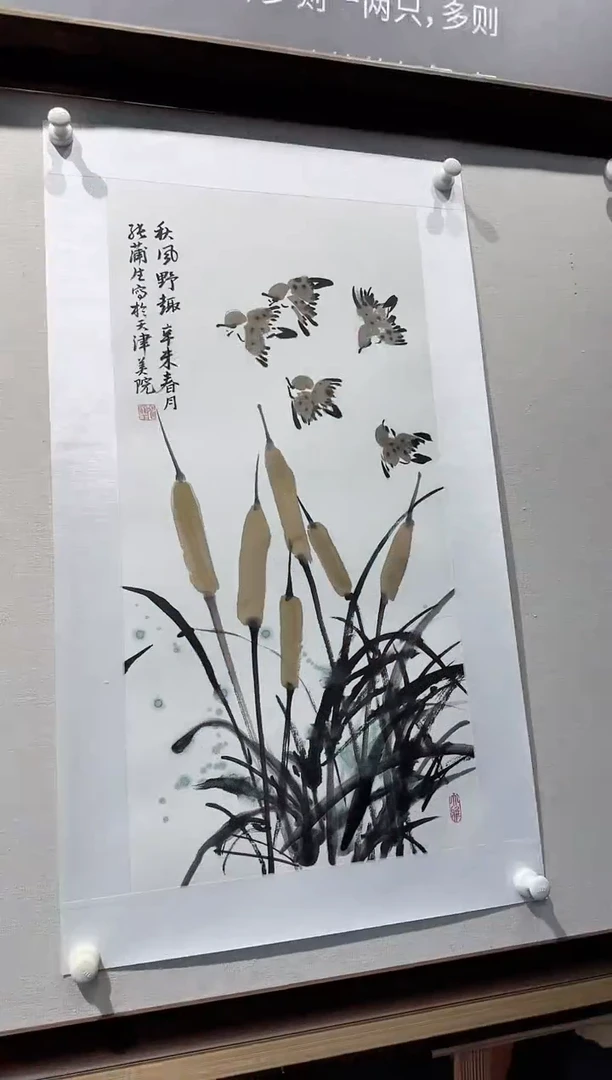 一两只，多则
秋风野趣 辛未春月
张蒲生写於天津美院